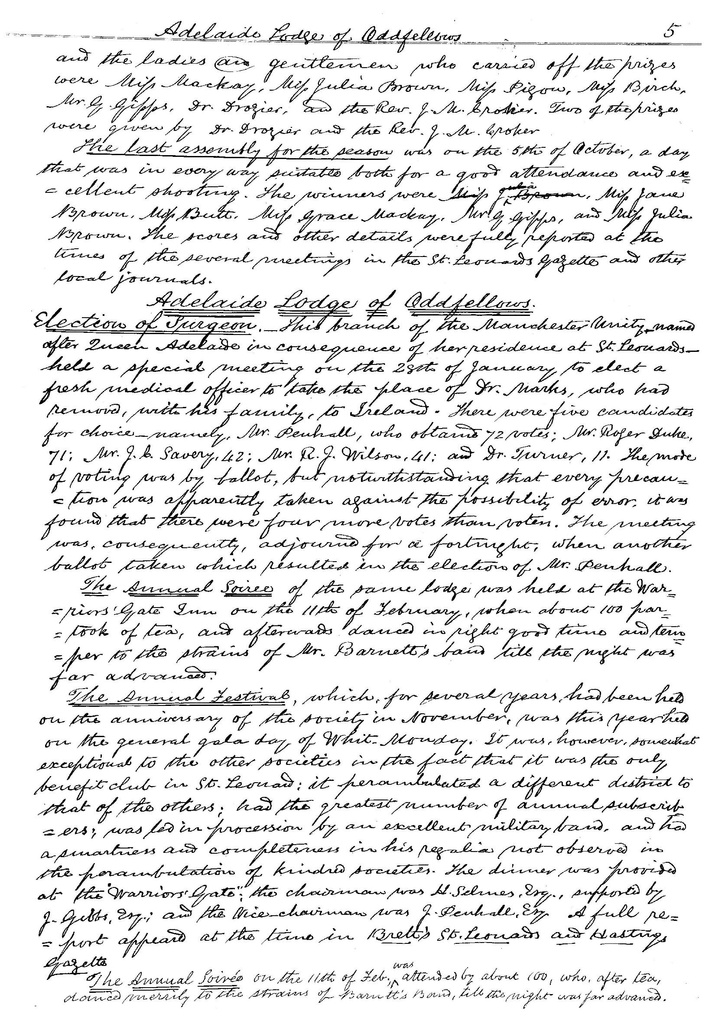 Adelaide Lodge of Oddfellows 5
and the ladies and gentlemen who carried off the prizes
were Miss Mackay, Miss Julia Brown, Miss Pigou, Miss Birch,
Mr. G. Gipps, Dr. Drozier, and the Rev. J. M. Croker. Two of the prizes
were given by Dr. Drozier and the Rev. J. M. Croker
The last assembly for the season was on the 5th of October, a day
that was in every way suitable both for a good attendance and ex=
=cellent shooting. The winners were Miss Julia Brown, Miss Jane
Brown, Miss Butt, Miss Grace Mackay, Mr. G. Gipps, and Miss Julia
Brown. The scores and other details were fully reported at the
times of the several meetings in the St. Leonards Gazette and other
local journals.
Adelaide Lodge of Oddfellows.
Election of Surgeon. This branch of the Manchester Unity, named
after Queen Adelaide in consequence of her residence at St. Leonards—
held a special meeting on the 28th of January to elect a
fresh medical officer to take the place of Dr. Marks, who had
removed, with his family, to Ireland. There were five candidates
for choice—namely, Mr. Penhall, who obtand 72 votes; Mr. Roger Duke,
71; Mr. J. C. Savery, 42; Mr. R. J. Wilson, 41; and Dr. Turner, 11. The mode
of voting was by ballot, but noturthstanding that every precau=
=tion was apparently taken against the possibility of error, it was
found that there were four more votes than voters. The meeting
was, consequently, adjourned for a fortnight, when another
ballot taken which resulted in the election of Mr. Penhall.
The Annual Soiree of the same lodge was held at the War=
=riors' Gate Inn on the 11th of February, when about 100 par=
=took of tea, and afterwads danced in right good time and tem=
=per to the strains of Mr. Barnett's band till the night was
far advanced.
The Annual Festival, which, for several years, had been held
on the anniversary of the society in November, was this year held
on the general gala day of Whit-Monday. It was, however, somewhat
exceptional to the other societies in the fact that it was the only
benefit club in St. Leonard; it perambulated a different district to
that of the others; had the greatest number of annual subscrib=
=ers; was led in procession by an excellent military band, and had
a smartness and completeness in his regalia not observed in
the perambulation of kindred societies. The dinner was provided
at the "Warriors' Gate"; the chairman was H. Selmes, Esq., supported by
J. Gibbs, Esq.; and the Vice-chairman was J. Penhall, Esq. A full re=
=port appeard at the time in Brett's St. Leonards and Hastings
Gazette
The Annual Soirée on the 11th of Feb. was attended by about 100, who, after tea,
danced merrily to the strains of Barnett's Band, till the night was far advanced.